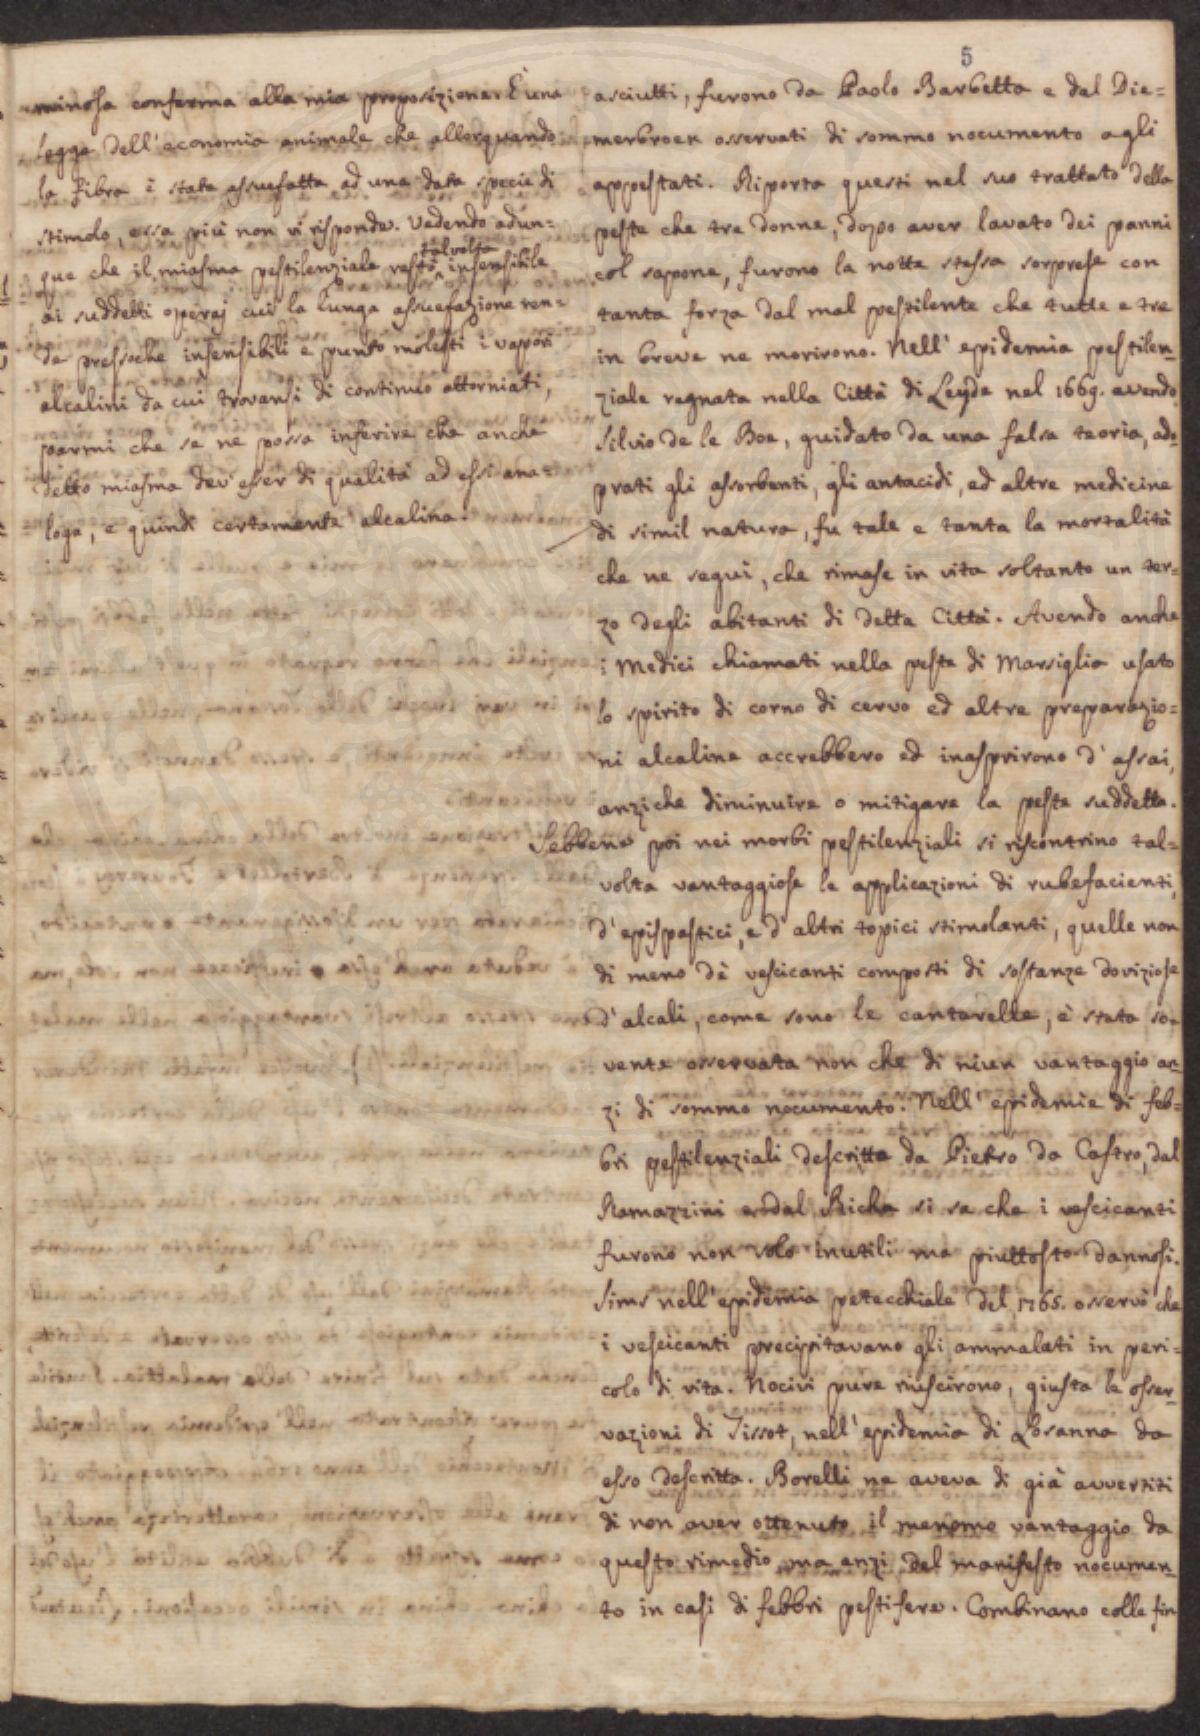 5
minosa conferma alla mia proposizione. È una
legge dell'economia animale che allorquando
la fibra è stata assuefatta ad una data specie di
stimolo, essa più non vi risponde. Vedendo adun=
que che il miasma pestilenziale restò talvolta insensibile
ai suddetti operaj cui la lunga assuefazione ren=
de pressochè insensibili e punto molesti i vapori
alcalini da cui trovansi di continuo attorniati,
parmi che se ne possa inferire che anche
detto miasma dev'esser di qualità ad essi ana=
loga, e quindi certamente alcalina.
asciutti, furono da Paolo Barbetta e dal Die=
merbroek osservati di sommo nocumento agli
appestati. Riporta questi nel suo trattato della
peste che tre donne, dopo aver lavato dei panni
col sapone, furono la notte stessa sorprese con
tanta forza dal mal pestilente che tutte e tre
in breve ne morirono. Nell'epidemia pestilen=
ziale regnata nella Città di Leyde nel 1669. avendo
Silvio de le Boe, guidato da una falsa teoria, ado=
prati gli assorbenti, gli antacidi, ed altre medicine
di simil natura, fu tale e tanta la mortalità
che ne seguì, che rimase in vita soltanto un ter=
zo degli abitanti di detta Città. Avendo anche
i Medici chiamati nella peste di Marsiglia usato
lo spirito di corno di cervo ed altre preparazio=
ni alcaline accrebbero ed inasprirono d'assai,
anziche diminuire o mitigare la peste suddetta.
Sebbene poi nei morbi pestilenziali si riscontrino tal=
volta vantaggiose le applicazioni di rubefacienti,
d'epispastici, e d'altri topici stimolanti, quelle non
di meno dè vescicanti composti di sostanze doviziose
d'alcali, come sono le cantarelle, è stata so=
vente osservata non che di niun vantaggio an=
zi di sommo nocumento. Nell'epidemie di feb=
bri pestilenziali descritte da Pietro da Castro, dal
Ramazzini e dal Richa si sa che i vescicanti
furono non solo inutili ma piuttosto dannosi.
Sims nell'epidemia petecchiale del 1765. osservò che
i vescicanti precipitavano gli ammalati in peri=
colo di vita. Nocivi pure riuscirono, giusta le osser=
vazioni di Tissot, nell'epidemia di Losanna da
esso descritta. Borelli ne aveva di già avvertiti
di non aver ottenuto il menomo vantaggio da
questo rimedio ma anzi del manifesto nocumen=
to in casi di febbri pestifere. Combinano colle fin